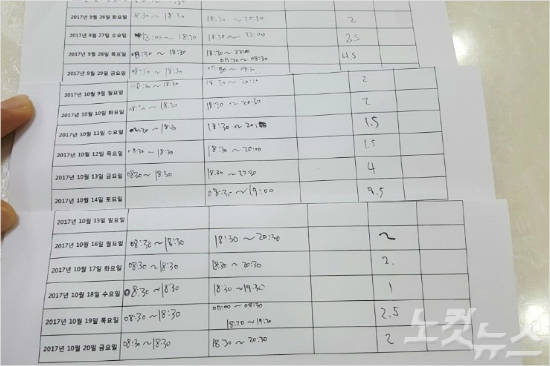 2017년 9월 26일 화요일 8:30 ~ 18:30 18:30 ~ 20:30 2
2017년 9월 27일 수요일 18:30 18:30 ~ 22:00 3.5
2017년 9월 28일 목요일 08:30 ~ 18:30 18:30 ~ 22:00 4.5
2017년 9월 29일 금요일 08:30 ~ 18:30
2017년 10월 9일 월요일 18:30 ~ 20:30 2
2017년 10월 10일 화요일 ~ 18:30 18:30 ~ 20:30 2
2017년 10월 11일 수요일 ~ 18:30 18:30 ~ 1.5
2017년 10월 12일 목요일 08:30 ~ 18:30 18:30 ~ 20:00 1.5
2017년 10월 13일 금요일 08:30 ~ 18:30 18:30 ~ 22:30 4
2017년 10월 14일 토요일 08:30 ~ 19:00 9.5
2017년 10월 15일 일요일
2017년 10월 16일 월요일 08:30 ~ 18:30 18:30 ~ 20:30 2
2017년 10월 17일 화요일 08:30 ~ 18:30 18:30 ~ 20:30 2.
2017년 10월 18일 수요일 08:30 ~ 18:30 18:30 ~ 19:30 1
07:00 ~ 08:30
2017년 10월 19일 목요일 08:30 ~ 18:30 2.5
18:30 ~ 19:30
2017년 10월 20일 금요일 08:30 ~ 18:30 18:30 ~ 20:30 2
노컷뉴스